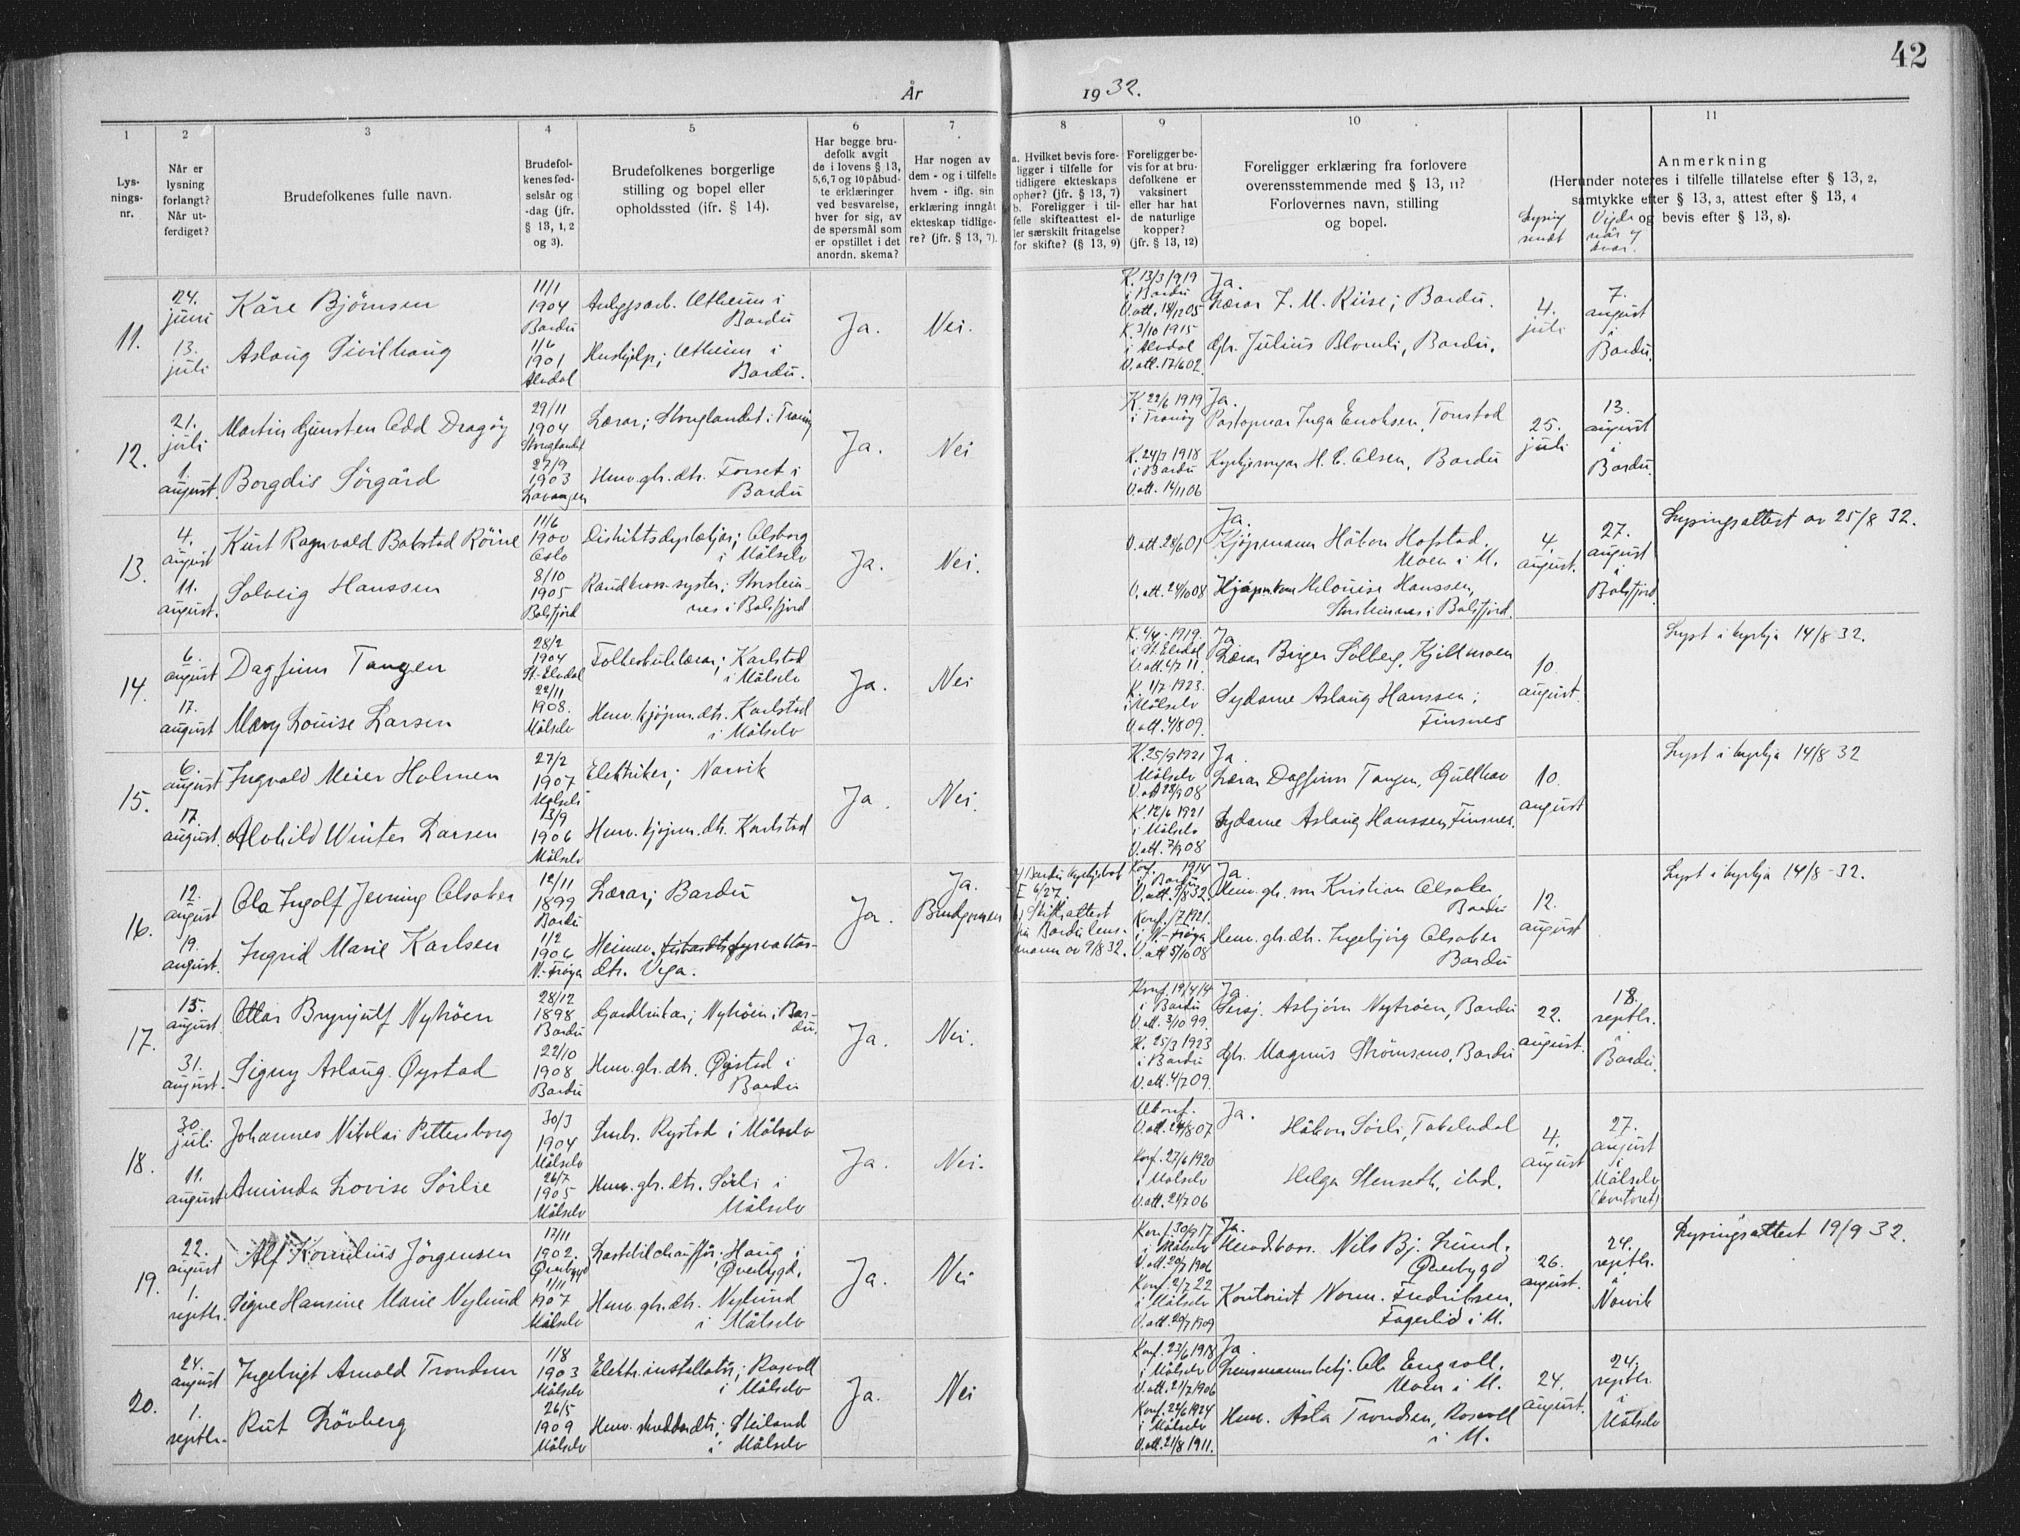 42
År 1932.
1
2
3
4
5
6
7
8
9
10
11
Lys-
nings-
nr.
Når er
lysning
forlangt?
Når ut-
ferdiget?
Brudefolkenes fulle navn.
Brudefol-
kenes fød-
selsår og
-dag (jfr.
§ 13, 1, 2
og 3).
Brudefolkenes borgerlige
stilling og bopel eller
opholdssted (ifr. § 14).
Har begge bru-
defolk avgit
de i lovens § 13,
5,6,7 og 10 påbud-
te erklæringer
ved besvarelse,
hver for sig, av
de spørsmål som
er opstillet i det
anordn. skema?
Har nogen av
dem - og i tilfelle
hvem - iflg. sin
erklæring inngåt
ekteskap tidlige-
re? (jfr. § 13, 7).
a. Hvilket bevis fore-
ligger i tilfelle for
tidligere ekteskaps
ophør? (jfr. § 13, 7)
b. Foreligger i til-
felle skifteattest el-
ler særskilt fritagelse
for skifte? (§ 13, 9)
Foreligger be-
vis for at bru-
defolkene er
vaksinert
eller har hat
de naturlige
kopper?
(jfr. § 13, 12)
Foreligger erklæring fra forlovere
overensstemmende med § 13, 11?
Forlovernes navn, stilling
og bopel.
Lysing
sendt
Vigde
når og
hvor.
Anmerkning
(Herunder noteres i tilfelle tillatelse efter § 13, 2,
samtykke efter § 13, 3, attest efter § 13, 4
og bevis efter § 13, 8).
11.
24.
juni
13.
juli
Kåre Bjørnsen
Aslaug Sivilhaug
11/1
1904
Bardu
1/6
1901
Alvdal
Anleggsarb. Utheim i
Bardu
Hushjelp; Utheim i
Bardu.
Ja.
Nei.
K. 13/3 1919
i Bardu
V.att. 18/12 05
K. 3/10 1915
i Alvdal
V.att. 17/6 02.
Ja.
Lærar J. M. Kiise; Bardu.
Gbr. Julius Blomli, Bardu.
4.
juli
7.
august
i
Bardu.
12.
21.
juli
1.
august.
Martin Gjunsten Odd Dragøy
Borgdis Sørgård
29/11
1904
Stonglandet
27/9
1903
Lavangen
Lærar; Stonglandet i Tranøy
Heimv. gbr. dtr. Forset i
Bardu
Ja.
Nei
K 22/6 1919
i Tranøy
K. 24/3 1918
i Bardu
V.att. 14/11 06
Ja.
Postopnar Inga Enoksen, Tonstad
Kyrkjesongar H. E. Olsen, Bardu
25.
juli
13.
august
i
Bardu.
13.
4.
august
11.
august.
Kurt Ragnvald Bakstad Röine
Solveig Hanssen
11/6
1900
Oslo
8/10
1905
Balsfjord
Distriktsdyrlækjar; Olsborg
i Målselv
Raudkross-syster; Storstein-
nes i Balsfjord
Ja.
Nei.
V.att. 28/6 01
V.att. 24/10 08
Ja.
Kjøpmann Håkon Hofstad.
Moen i M.
Kjøpmkone Helouise Hanssen,
Storsteinnes i Balsfjord.
4.
august.
27.
august
i
Balsfjord
Lysingsattest av 25/8 32.
14.
6.
august
17.
august
Dagfinn Tangen
Mary Louise Larsen
28/2
1904
St-Elvdal
22/11
1908.
Målselv
Folkeskulelærar; Karlstad
i Målselv
Heimv. kjøpm. dtr. Karlstad
i Målselv
Ja.
Nei
K. 4/4-1919.
i St. Elvdal
V.att. 4/7 11.
K. 1/7 1923.
i Målselv
V.att. 4/8 09.
Ja
Lærar Birger Solberg, Kjellmoen
Sydame Aslaug Hanssen;
Finsnes
10.
august.
Lyst i kyrkja 14/8-32.
15.
6.
august
17.
august.
Ingvald Meier Holmen
Alvhild Winter Larsen
27/2
1907
Målselv
13/9
1906
Målselv
Elektriker; Narvik
Heimv. kjøpm. dtr. Karlstad
Ja.
Nei.
K. 25/9 1921
Målselv
V.att 28/9 08
K. 12/6 1921
i Målselv
V.att. 7/9 08
Ja.
Lærar Dagfinn Tangen, Gullhav
Sydame Aslaug Hanssen, Finsnes.
10.
august
Lyst i kyrkja 14/8 32
16.
12.
august
19.
august.
Ola Ingolf Jenning Olsokar
Ingrid Marie Karlsen
12/11
1899
Bardu
1/2
1906
N.-Frøya
Lærar; Bardu
Heimv. fyrvaktar-
dtr. Vega.
Ja.
Ja.
Brudgomen
a) Bardu kyrkjebok
I 6/27.
b) Skifteattest
frå Bardu lens-
mann av 9/8 32.
Konf. 1914
i Bardu
V.att. 9/8 32.
Konf. 1/7 1921.
i N.-Frøya
V.att 5/10 08
Ja.
Heim. gbr. søn Kristian Olsokar,
Bardu
Heim. gbr. dtr. Ingebjørg Olsokar
Bardu
12.
august
Lyst i kyrkja 14/8-32.
17.
15.
august.
31.
august.
Ottar Brynjulf Nyhöen
Signy Aslaug Øystad
28/12
1898
Bardu
22/10
1908
Bardu
Gardbrukar; Nyhöen i Bar-
du.
Heimv. gbr. dtr. Øystad i
Bardu
Ja.
Nei.
Konf. 19/4 14
i Bardu
V.att. 3/10 99.
K. 25/3 1923
i Bardu
V.att. 4/7 09.
Ja.
Sersj. Asbjørn Nytrøen, Bardu
Gbr. Magnus Strömsmo, Bardu
22.
august.
18.
septbr.
i
Bardu.
18.
30.
juli
11.
august
Johannes Nikolai Pettersborg
Aminda Lovise Sörlie
30/3
1904
Målselv
26/7
1905
Målselv
Småbr. Rystad i Målselv
Heimv. gbr. dtr. Sörli i
Målselv
Ja.
Nei.
Ukonf.
V.att. 29/8 07
Konf. 27/6 1920
i Målselv
V.att. 21/7 06
Ja.
Håkon Sörli, Takelvdal
Helga Stenseth, ibd.
4.
august
27.
august
i
Målselv
(kontoret)
19.
22.
august
1.
septbr.
Alf Kornelius Jörgensen
Signe Hansine Marie Nylund
17/11
1902.
Øverbygd
1/11
1907
Målselv
Lastebilchauffør; Haug i
Øverbygd.
Heimv. gbr. dtr. Nylund
i Målselv
Ja.
Nei
Konf. 30/9 17
i Målselv
V.att. 20/7 1906
Konf. 2/7 22
i Målselv
V.att. 20/7 1909
Ja.
Handelsm. Nils Bj. Lund,
Øverbygd
Kontorist Norm. Fredriksen,
Fagerlid i M.
26.
august.
24.
septbr.
i
Narvik
Lysingsattest 19/9 32.
20.
24.
august
1.
septbr.
Ingebrigt Arnold Trondsen
Rut Lövberg
1/8
1903
Målselv
26/5
1909
Målselv
Elektr. installatör; Rosvoll
i Målselv
Heimv. dtr; Steiland
i Målselv
Ja.
Nei
Konf. 23/6 1918
i Målselv
V.att. 21/7 1906
Konf. 24/6 1924
i Målselv
V.att. 21/8 1911.
Ja.
Lensmannsbetj. Ole Engvoll.
Moen i M.
Heim. Asta Trondsen, Rosvoll
i M.
24.
august.
24.
septbr.
i
Målselv